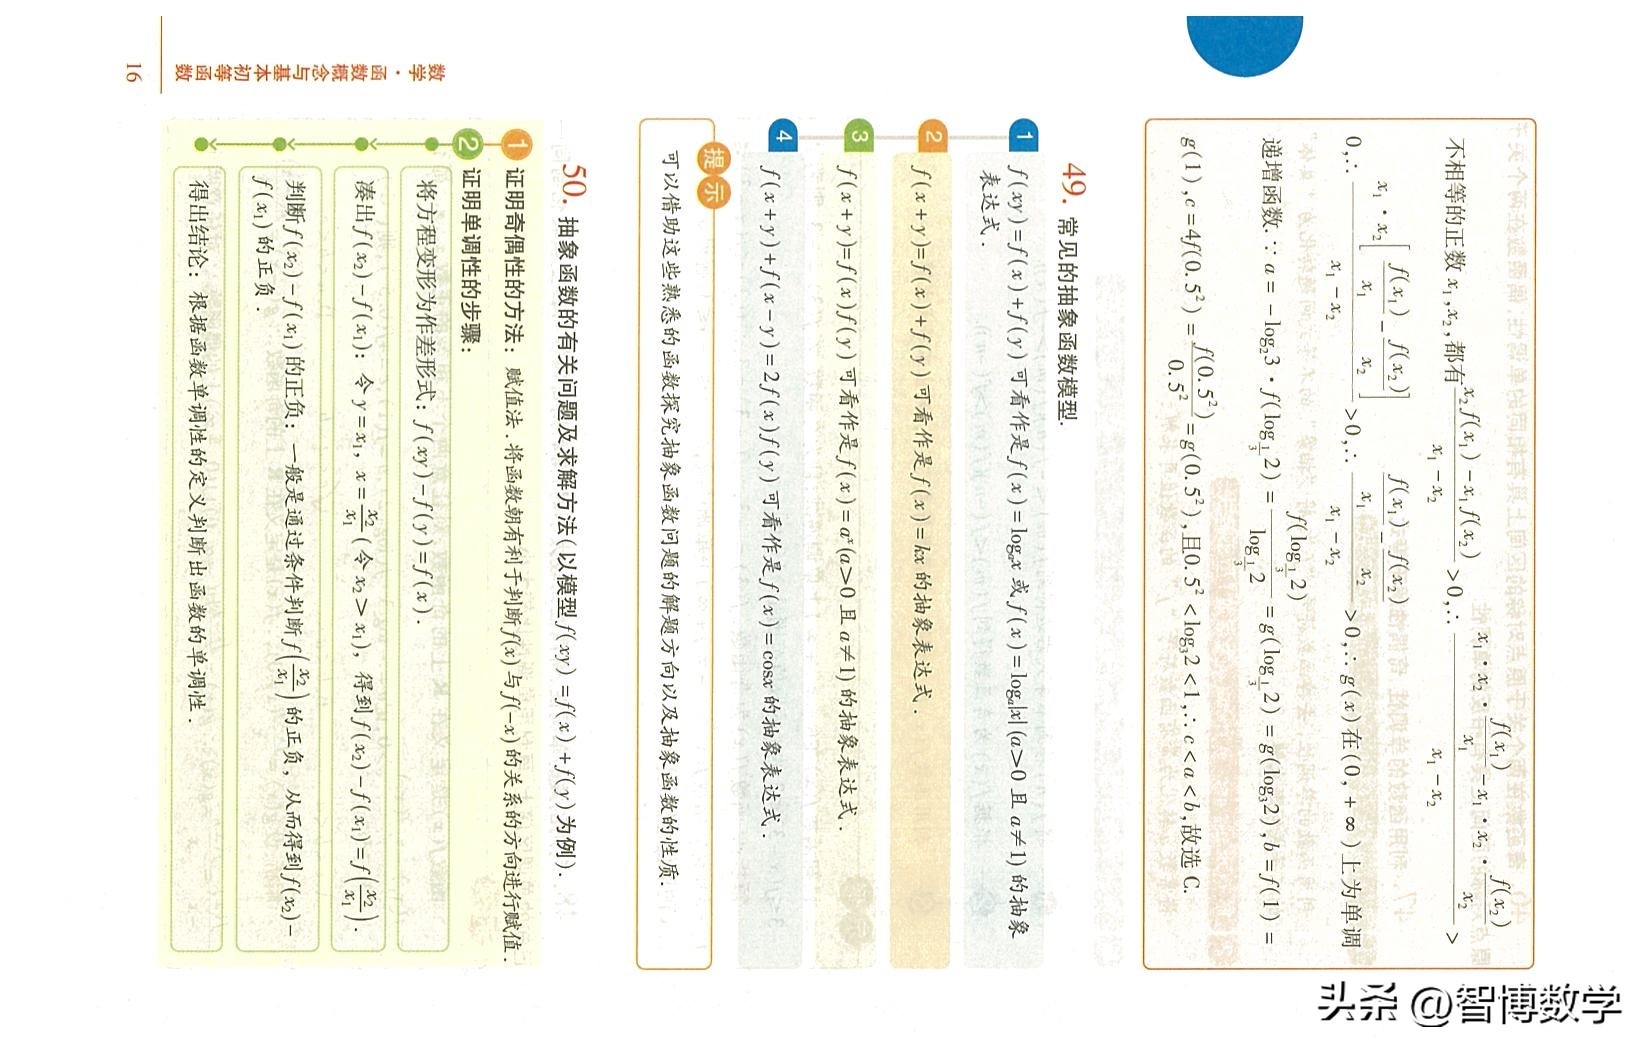 不相等的正数 x₁,x₂,都有 (x₂f(x₁)－x₁f(x₂))/(x₁－x₂)>0,∴ (x₁·x₂·f(x₁)/x₁－x₁·x₂·f(x₂)/x₂)/(x₁－x₂)>
0,∴ (x₁·x₂[f(x₁)/x₁－f(x₂)/x₂])/(x₁－x₂)>0,∴ (f(x₁)/x₁－f(x₂)/x₂)/(x₁－x₂)>0,∴g(x)在(0,+∞)上为单调
递增函数.∵a=－log₂3·f(log_{1/3}2)=f(log_{1/3}2)/log_{1/3}2=g(log_{1/3}2)=g(log₃2),b=f(1)=
g(1),c=4f(0.5²)=f(0.5²)/0.5²=g(0.5²),且0.5²<log₃2<1,∴c<a<b,故选C.
49. 常见的抽象函数模型.
1 f(xy)=f(x)+f(y)可看作是f(x)=logₐx或f(x)=logₐ|x|(a>0且a≠1)的抽象
表达式.
2 f(x+y)=f(x)+f(y)可看作是f(x)=kx的抽象表达式.
3 f(x+y)=f(x)f(y)可看作是f(x)=aˣ(a>0且a≠1)的抽象表达式.
4 f(x+y)+f(x－y)=2f(x)f(y)可看作是f(x)=cosx的抽象表达式.
提示
可以借助这些熟悉的函数探究抽象函数问题的解题方向以及抽象函数的性质.
50. 抽象函数的有关问题及求解方法(以模型f(xy)=f(x)+f(y)为例).
1 证明奇偶性的方法：赋值法.将函数朝有利于判断f(x)与f(-x)的关系的方向进行赋值.
2 证明单调性的步骤：
将方程变形为作差形式：f(xy)－f(y)=f(x).
凑出f(x₂)－f(x₁)：令y=x₁，x=x₂/x₁(令x₂>x₁)，得到f(x₂)－f(x₁)=f(x₂/x₁).
判断f(x₂)－f(x₁)的正负：一般是通过条件判断f(x₂/x₁)的正负，从而得到f(x₂)－
f(x₁)的正负.
得出结论：根据函数单调性的定义判断出函数的单调性.
数学·函数概念与基本初等函数
16
头条 @智博数学